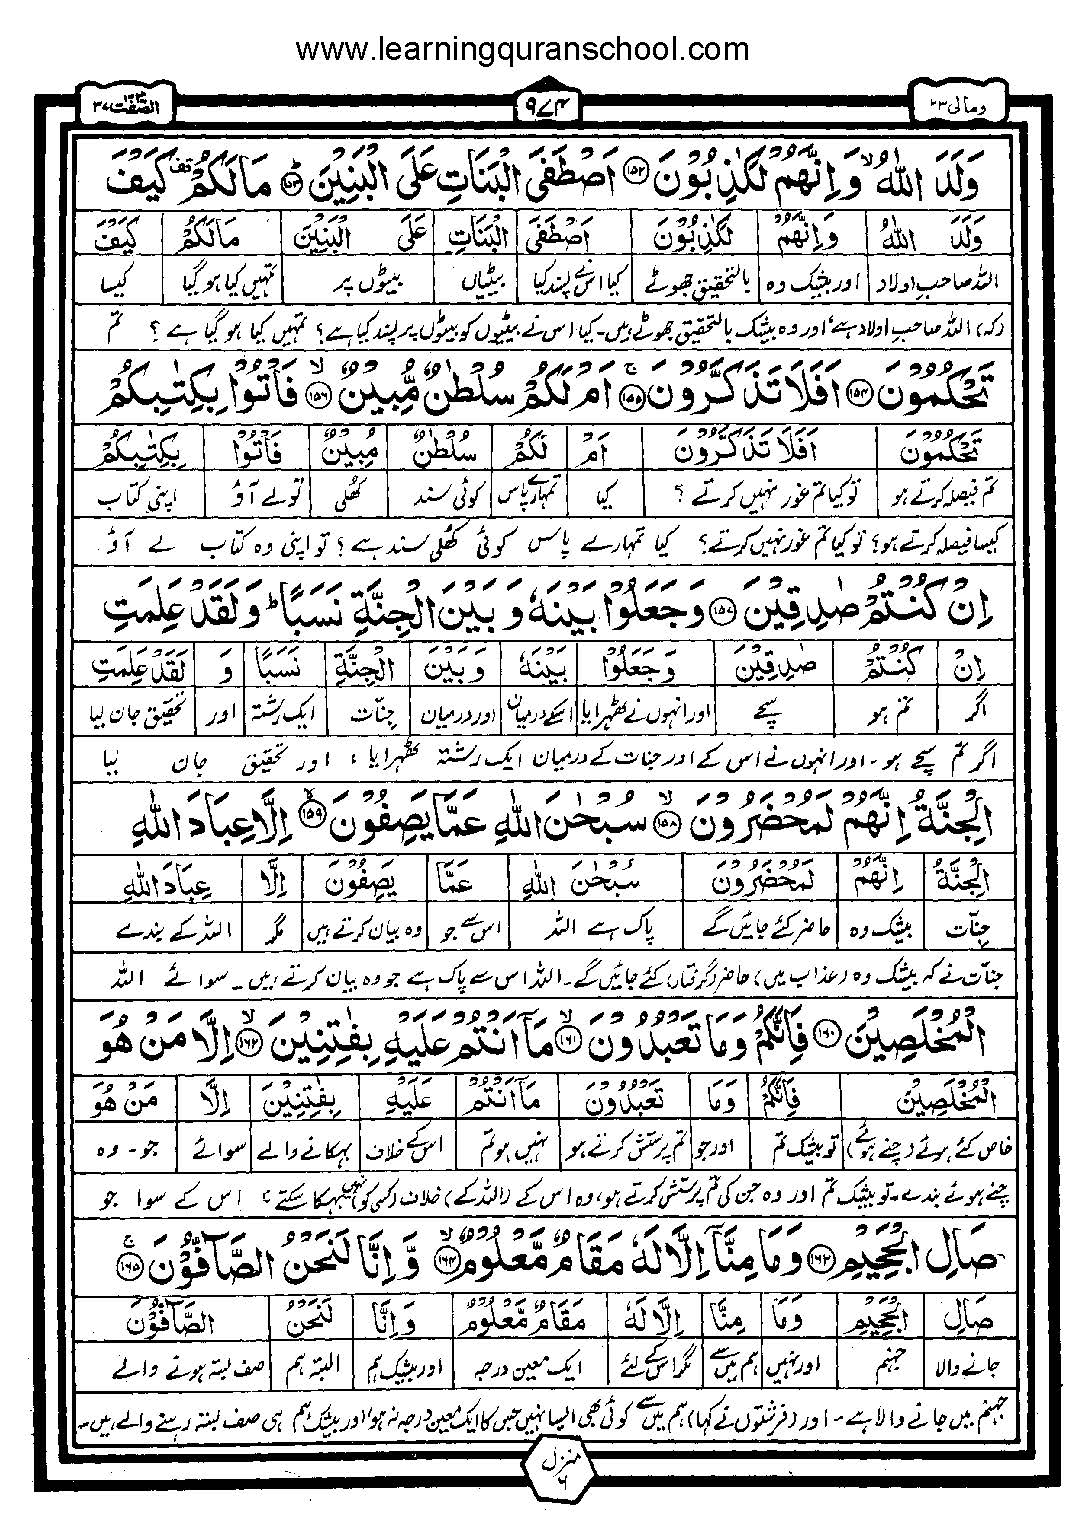 www.learningquranschool.com
الصّٰفّٰت ۳۷
۹۷۴
ومالی ۲۳
وَلَدَ اللّٰهُ ۙ وَاِنَّهُمْ لَكٰذِبُوْنَ ﴿۱۵۲﴾ اَصْطَفَى الْبَنَاتِ عَلَى الْبَنِيْنَ ﴿۱۵۳﴾ مَا لَكُمْ ۫ كَيْفَ
وَلَدَ اللّٰهُ وَاِنَّهُمْ لَكٰذِبُوْنَ اَصْطَفَى الْبَنَاتِ عَلَى الْبَنِيْنَ مَا لَكُمْ كَيْفَ
اللہ صاحبِ اولاد اور بیشک وہ بالتحقیق جھوٹے کیا اس نے پسند کیا بیٹیاں بیٹوں پر تمہیں کیا ہو گیا کیسا
(کہ) اللہ صاحبِ اولاد ہے، اور وہ بیشک بالتحقیق جھوٹے ہیں۔ کیا اس نے بیٹیوں کو بیٹوں پر پسند کیا ہے؟ تمہیں کیا ہو گیا ہے؟ تم
تَحْكُمُوْنَ ﴿۱۵۴﴾ اَفَلَا تَذَكَّرُوْنَ ﴿۱۵۵﴾ اَمْ لَكُمْ سُلْطٰنٌ مُّبِيْنٌ ﴿۱۵۶﴾ فَاْتُوْا بِكِتٰبِكُمْ
تَحْكُمُوْنَ اَفَلَا تَذَكَّرُوْنَ اَمْ لَكُمْ سُلْطٰنٌ مُّبِيْنٌ فَاْتُوْا بِكِتٰبِكُمْ
تم فیصلہ کرتے ہو تو کیا تم غور نہیں کرتے؟ کیا تمہارے پاس کوئی سند کھلی تو لے آؤ اپنی کتاب
کیسا فیصلہ کرتے ہو؟ تو کیا تم غور نہیں کرتے؟ کیا تمہارے پاس کوئی کھلی سند ہے؟ تو اپنی وہ کتاب لے آؤ
اِنْ كُنْتُمْ صٰدِقِيْنَ ﴿۱۵۷﴾ وَجَعَلُوْا بَيْنَهٗ وَبَيْنَ الْجِنَّةِ نَسَبًا ؕ وَلَقَدْ عَلِمَتِ
اِنْ كُنْتُمْ صٰدِقِيْنَ وَجَعَلُوْا بَيْنَهٗ وَبَيْنَ الْجِنَّةِ نَسَبًا وَ لَقَدْ عَلِمَتِ
اگر تم ہو سچے اور انہوں نے ٹھہرایا اسکے درمیان اور درمیان جنّات ایک رشتہ اور تحقیق جان لیا
اگر تم سچے ہو۔ اور انہوں نے اس کے اور جنات کے درمیان ایک رشتہ ٹھہرایا، اور تحقیق جان لیا
الْجِنَّةُ اِنَّهُمْ لَمُحْضَرُوْنَ ﴿۱۵۸﴾ سُبْحٰنَ اللّٰهِ عَمَّا يَصِفُوْنَ ﴿۱۵۹﴾ اِلَّا عِبَادَ اللّٰهِ
الْجِنَّةُ اِنَّهُمْ لَمُحْضَرُوْنَ سُبْحٰنَ اللّٰهِ عَمَّا يَصِفُوْنَ اِلَّا عِبَادَ اللّٰهِ
جنّات بیشک وہ حاضر کئے جائیں گے پاک ہے اللہ اس سے جو وہ بیان کرتے ہیں مگر اللہ کے بندے
جنّات نے کہ بیشک وہ (عذاب میں) حاضر (گرفتار) کئے جائیں گے۔ اللہ اس سے پاک ہے جو وہ بیان کرتے ہیں۔ سوائے اللہ
الْمُخْلَصِيْنَ ﴿۱۶۰﴾ فَاِنَّكُمْ وَمَا تَعْبُدُوْنَ ﴿۱۶۱﴾ مَآ اَنْتُمْ عَلَيْهِ بِفٰتِنِيْنَ ﴿۱۶۲﴾ اِلَّا مَنْ هُوَ
الْمُخْلَصِيْنَ فَاِنَّكُمْ وَمَا تَعْبُدُوْنَ مَآ اَنْتُمْ عَلَيْهِ بِفٰتِنِيْنَ اِلَّا مَنْ هُوَ
خاص کئے ہوئے (چنے ہوئے) تو بیشک تم اور جو تم پرستش کرتے ہو نہیں ہو تم اس کے خلاف بہکانے والے سوائے جو۔ وہ
چنے ہوئے بندے۔ تو بیشک تم اور وہ جن کی تم پرستش کرتے ہو، وہ اس کے (اللہ کے) خلاف (کسی کو) نہیں بہکا سکتے، اس کے سوا جو
صَالِ الْجَحِيْمِ ﴿۱۶۳﴾ وَمَا مِنَّآ اِلَّا لَهٗ مَقَامٌ مَّعْلُوْمٌ ﴿۱۶۴﴾ وَّاِنَّا لَنَحْنُ الصَّآفُّوْنَ ﴿۱۶۵﴾
صَالِ الْجَحِيْمِ وَمَا مِنَّا اِلَّا لَهٗ مَقَامٌ مَّعْلُوْمٌ وَاِنَّا لَنَحْنُ الصَّآفُّوْنَ
جانے والا جہنم اور نہیں ہم میں سے مگر اس کے لئے ایک معین درجہ اور بیشک ہم البتہ ہم صف بستہ ہونے والے
جہنم میں جانے والا ہے۔ اور (فرشتوں نے کہا) ہم میں سے کوئی بھی ایسا نہیں جس کا ایک معین درجہ نہ ہو، اور بیشک ہم ہی صف بستہ رہنے والے ہیں۔
منزل
۶